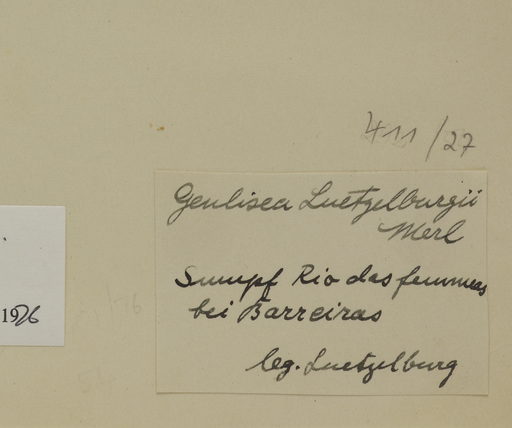 411/27
Genlisea Luetzelburgii
Merl
Sumpf Rio das femmeas
bei Barreiras
leg. Luetzelburg
1926